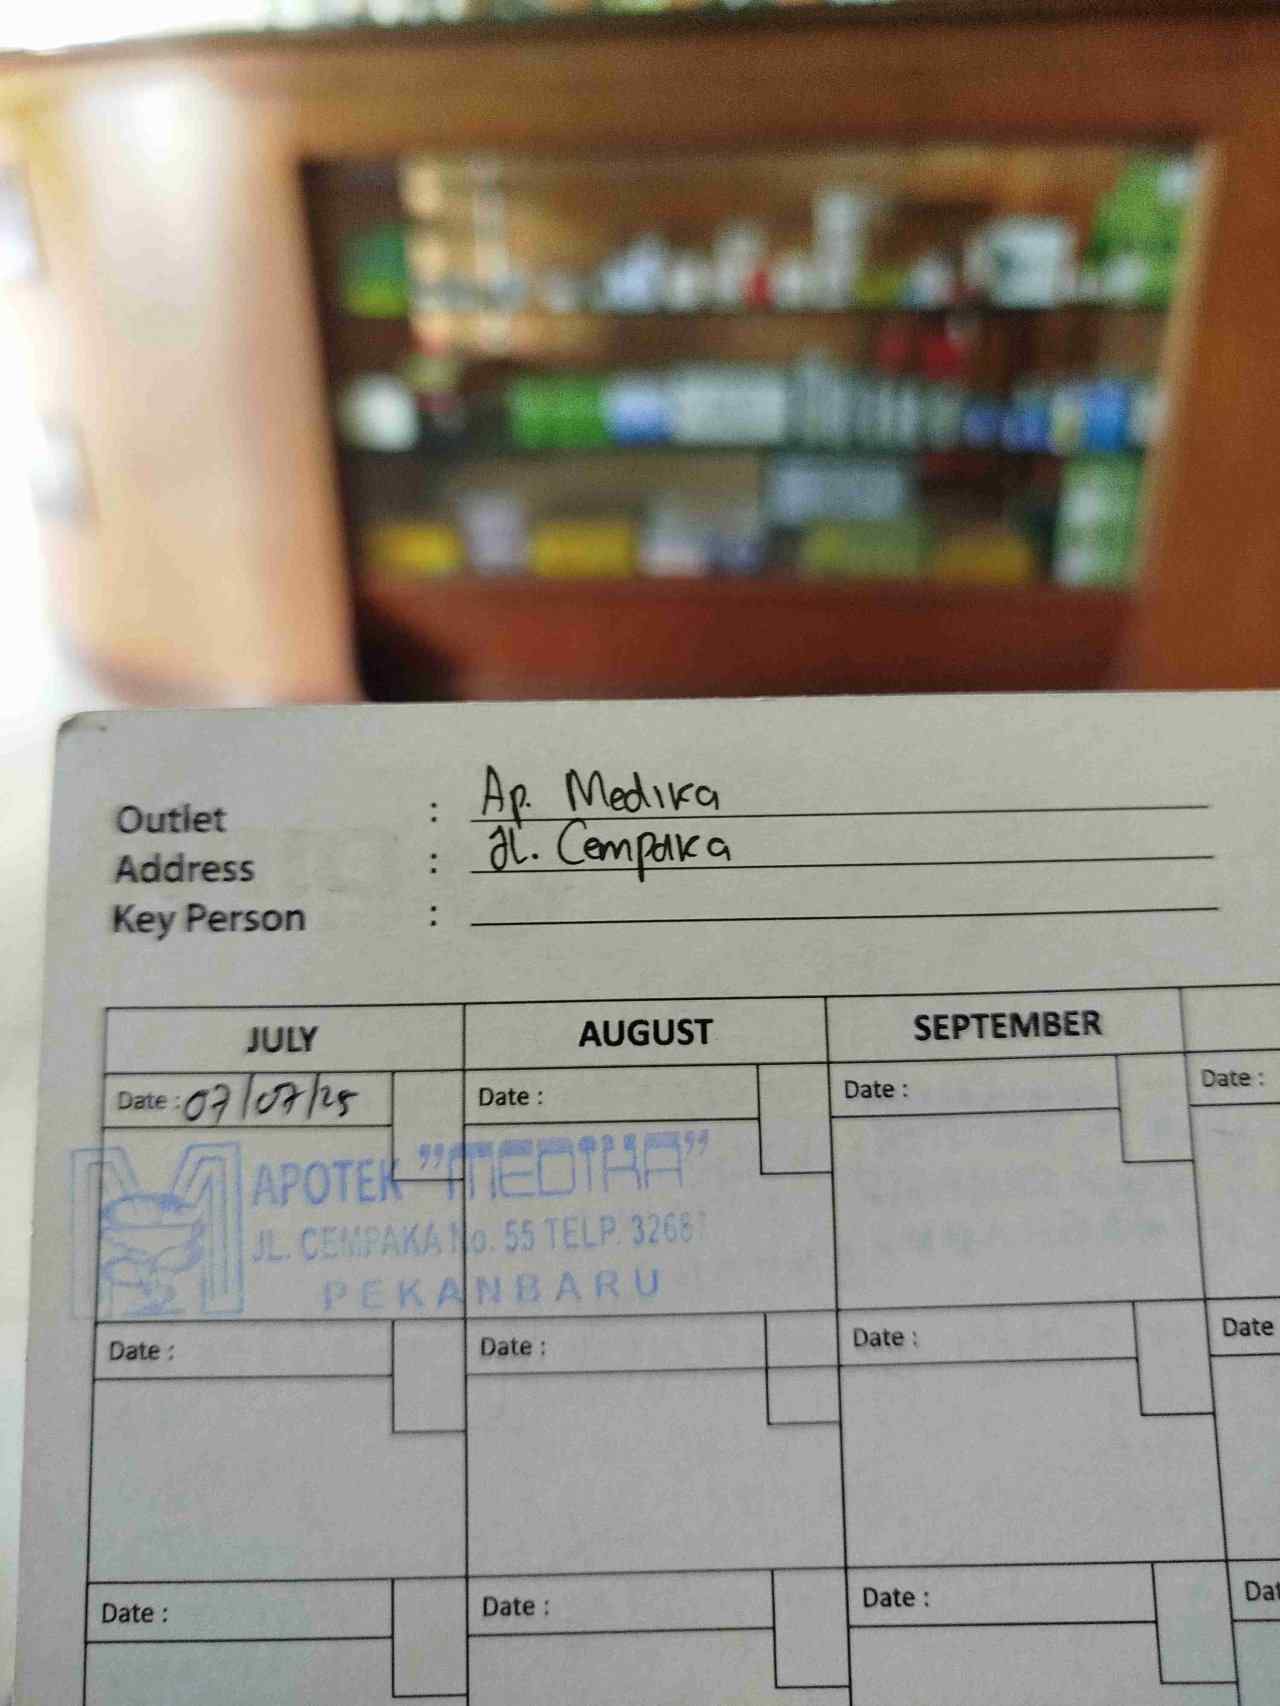 Outlet : Ap. Medika
Address : Jl. Cempaka
Key Person :
JULY AUGUST SEPTEMBER
Date : 07/07/25 Date : Date : Date :
APOTEK "MEDIKA"
JL. CEMPAKA No. 55 TELP.
PEKANBARU
Date : Date : Date : Date
Date : Date : Date : Dat